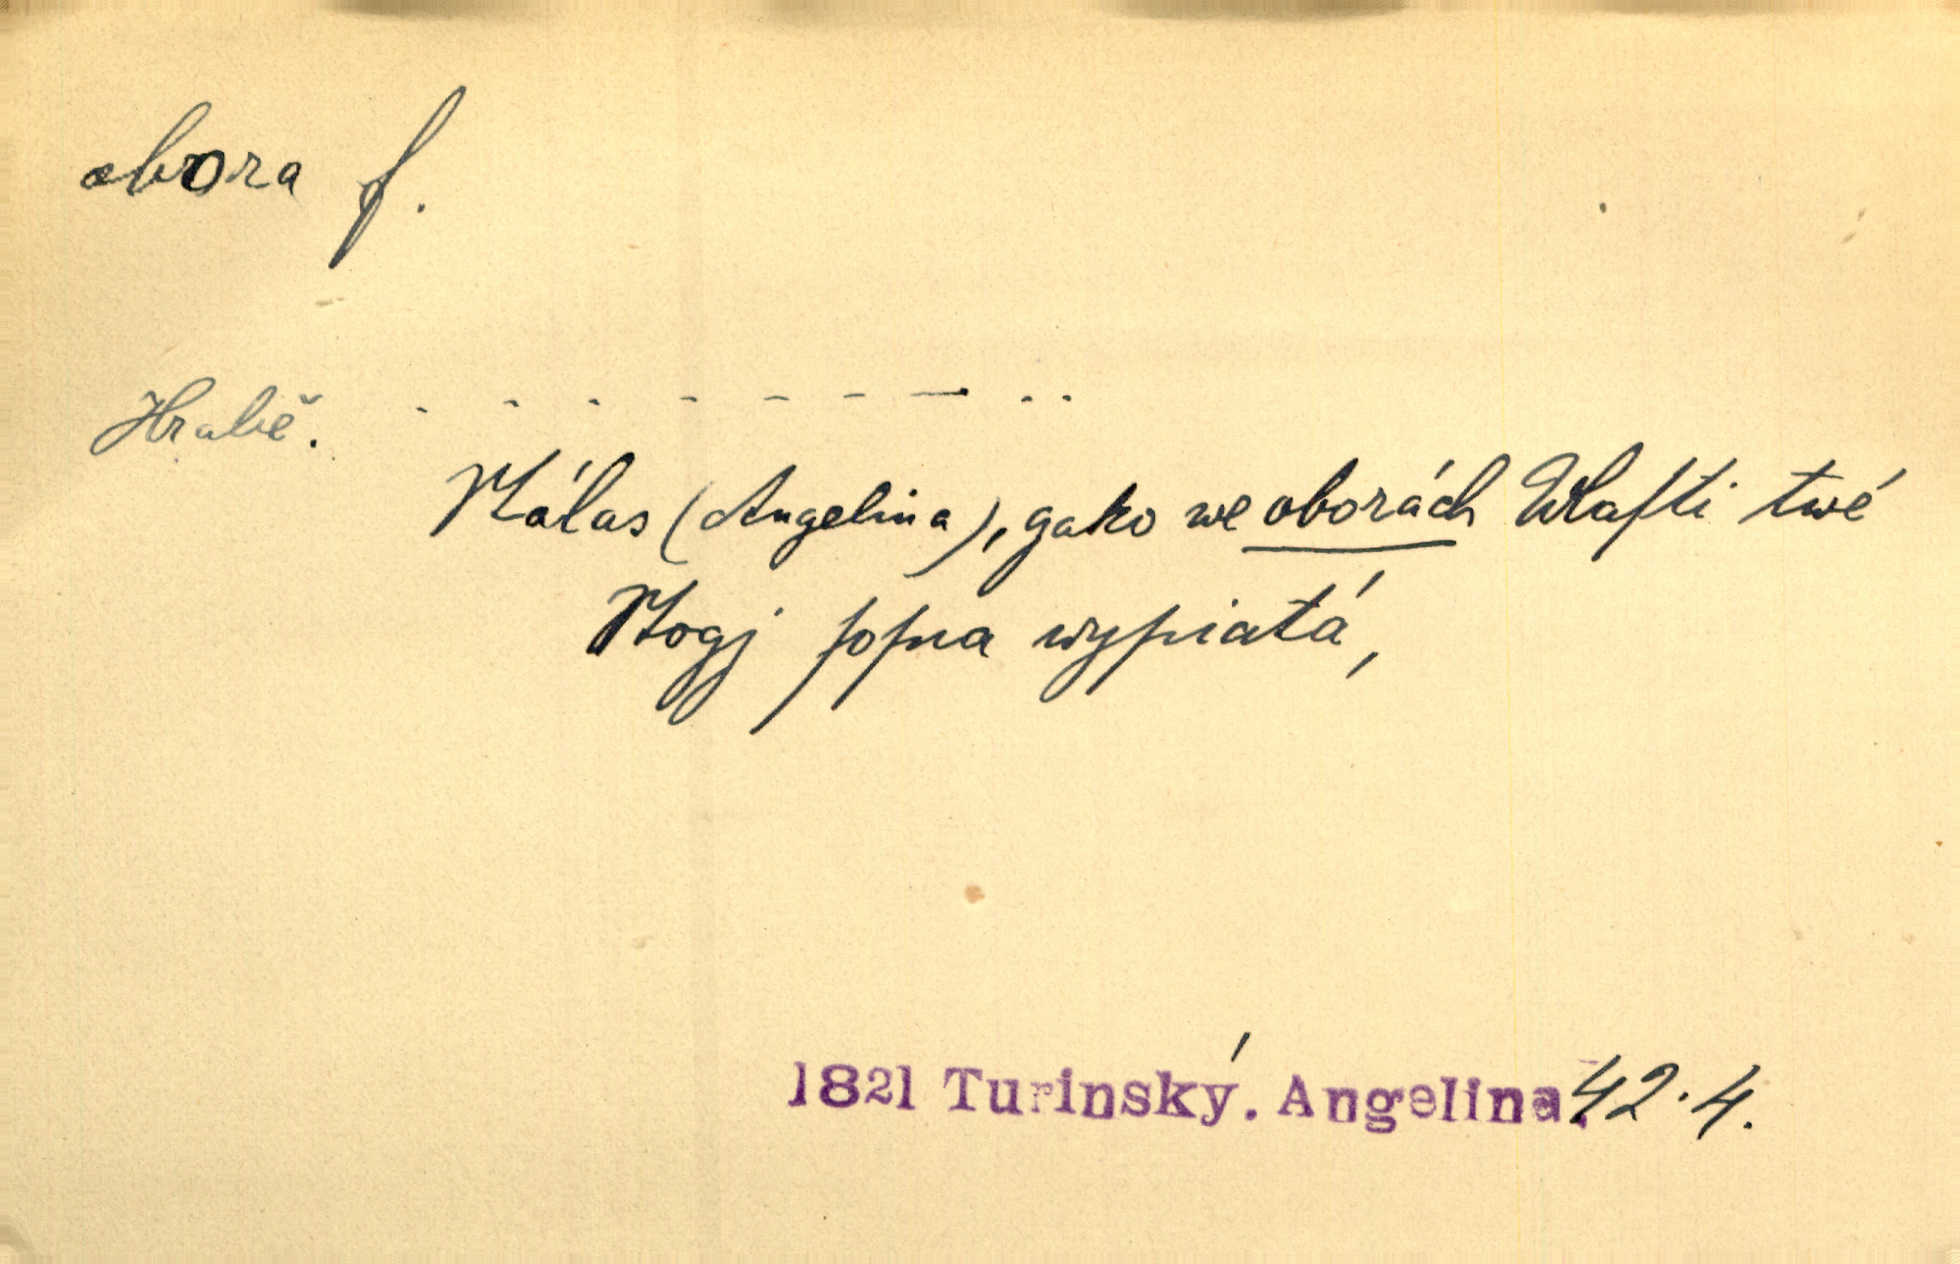 obora f.
Hrabě. . - . - - - — . .
Málas (Angelina), gako we oborách Wlaſti twé
Mogj ſoſna wypiatá,
1821 Turinský. Angelina. 42.4.